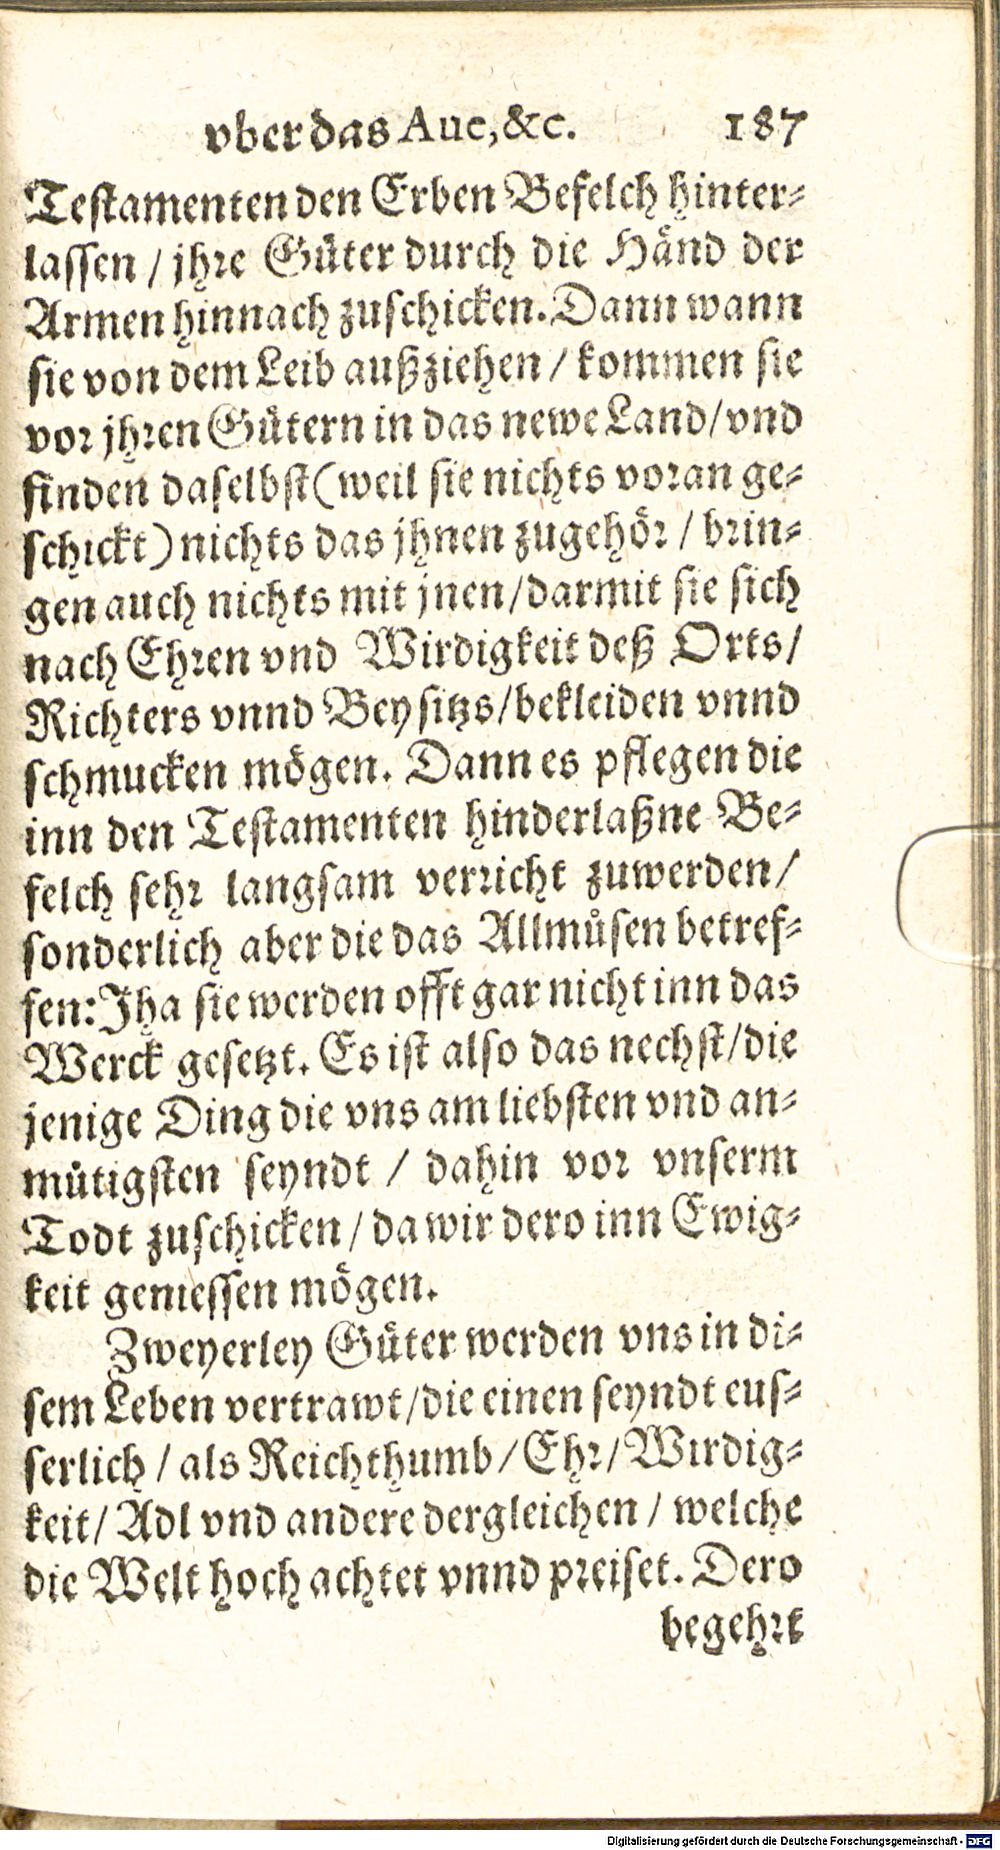 vber das Aue, &c. 187
Testamenten den Erben Befelch hinter-
lassen / jhre Güter durch die Händ der
Armen hinnach zuschicken. Dann wann
sie von dem Leib außziehen / kommen sie
vor jhren Gütern in das newe Land / vnd
finden daselbst (weil sie nichts voran ge-
schickt) nichts das jhnen zugehör / brin-
gen auch nichts mit jnen / darmit sie sich
nach Ehren vnd Wirdigkeit deß Orts /
Richters vnnd Beysitzs / bekleiden vnnd
schmucken mögen. Dann es pflegen die
inn den Testamenten hinderlaßne Be-
felch sehr langsam verricht zuwerden /
sonderlich aber die das Allmůsen betref-
fen: Jha sie werden offt gar nicht inn das
Werck gesetzt. Es ist also das nechst / die
jenige Ding die vns am liebsten vnd an-
mütigsten seyndt / dahin vor vnserm
Todt zuschicken / da wir dero inn Ewig-
keit geniessen mögen.
Zweyerley Güter werden vns in di-
sem Leben vertrawt / die einen seyndt eus-
serlich / als Reichthumb / Ehr / Wirdig-
keit / Adl vnd andere dergleichen / welche
die Welt hoch achtet vnnd preiset. Dero
begehrt
Digitalisierung gefördert durch die Deutsche Forschungsgemeinschaft - DFG